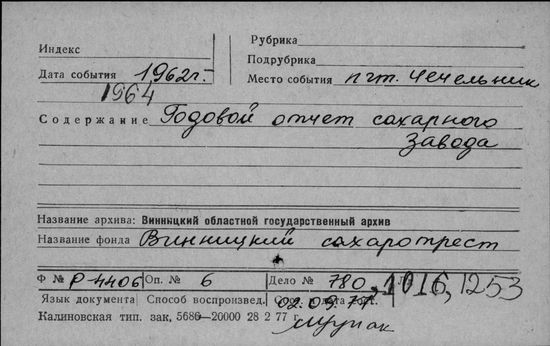 Рубрика
Индекс
Подрубрика
Дата события 1962г.
Место события пгт. Чечельник
1964
Содержание Годовой отчет сахарного
завода
Название архива: Винницкий областной государственный архив
Название фонда Винницкий сахаротрест
Ф № Р-4406 Оп. № 6 Дело № 780, 1016, 1253
Язык документа Способ воспроизвед.
02.09.77
Калиновская тип. зак. 5680—20000 28 2 77 г.